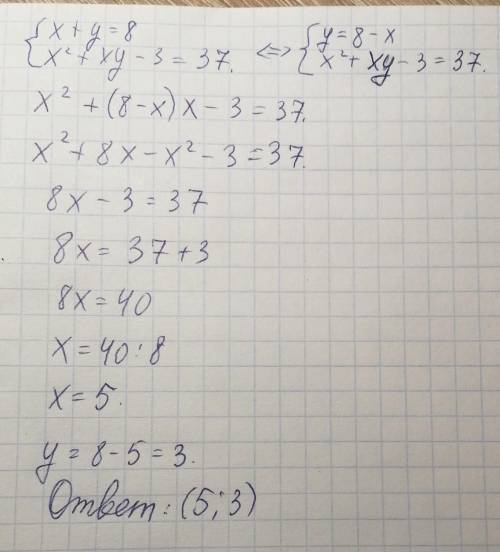 { x + y = 8 <=> { y = 8 - x
{ x² + xy - 3 = 37. { x² + xy - 3 = 37.
x² + (8 - x) x - 3 = 37.
x² + 8x - x² - 3 = 37.
8x - 3 = 37
8x = 37 + 3
8x = 40
x = 40 : 8
x = 5.
y = 8 - 5 = 3.
Ответ: (5; 3)